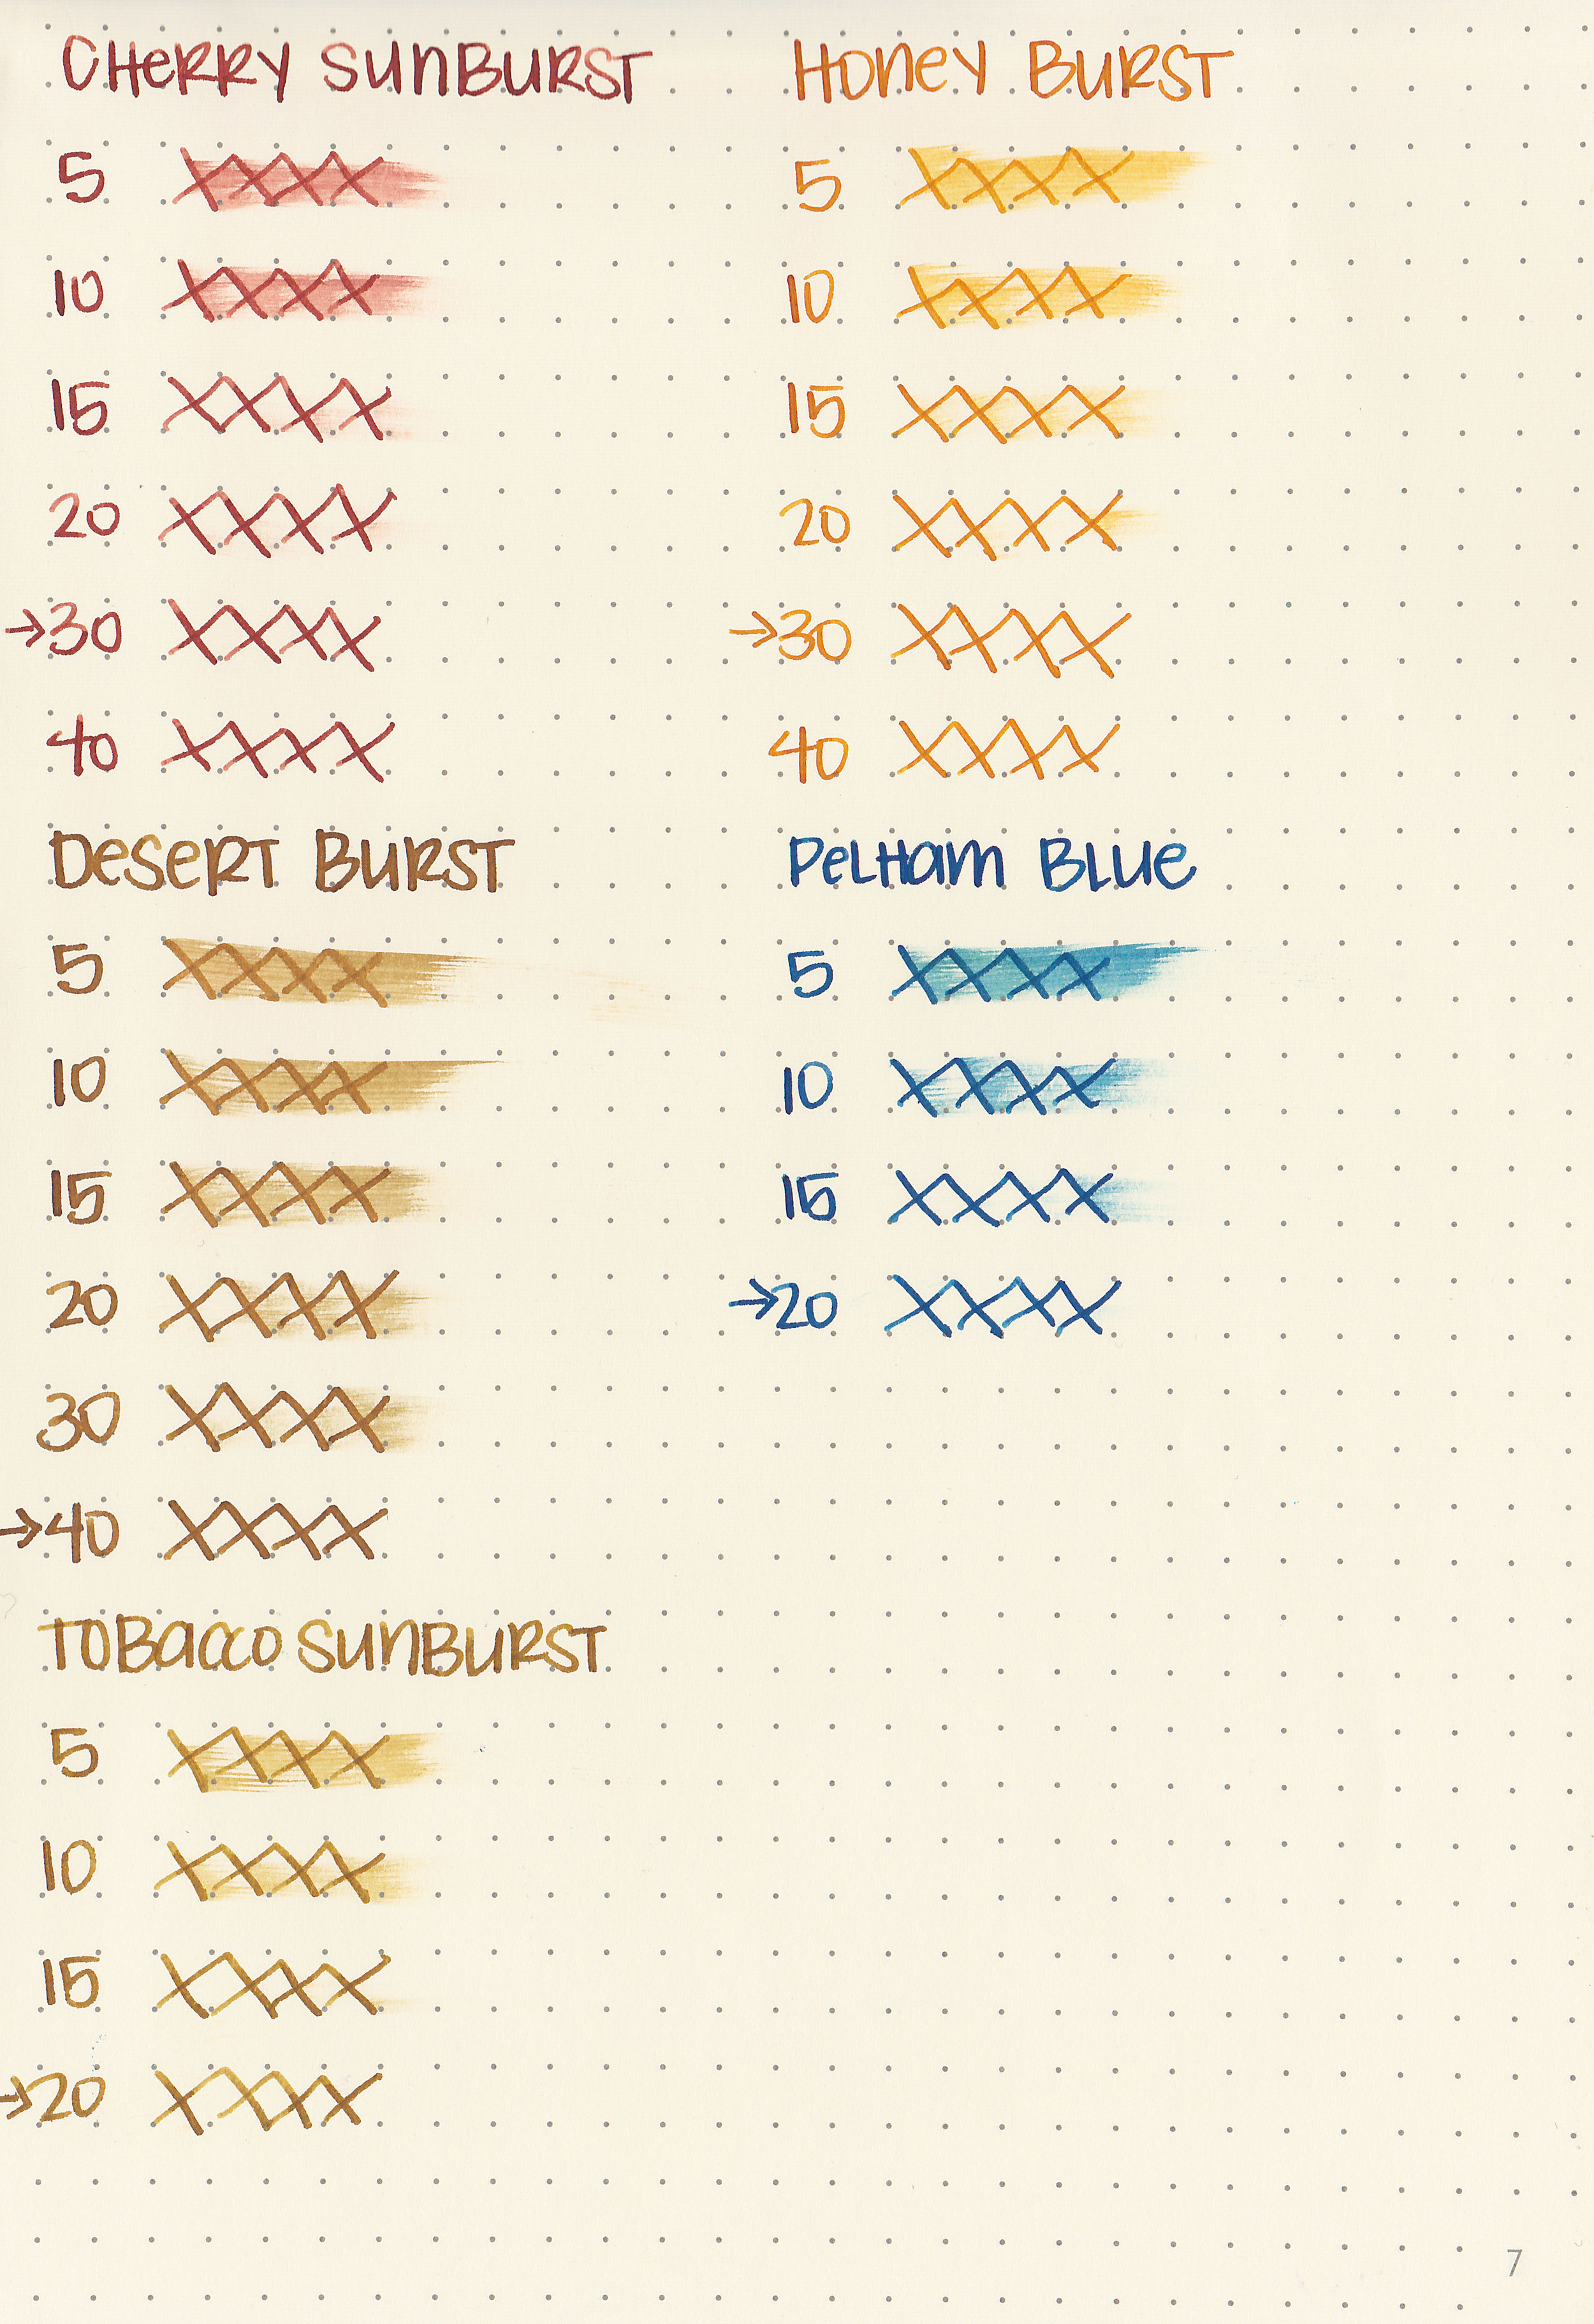 CHeRRY SunBURST
5 XXXX
10 XXXX
15 XXXX
20 XXXX
→30 XXXX
40 XXXX
Honey BURST
5 XXXX
10 XXXX
15 XXXX
20 XXXX
→30 XXXX
40 XXXX
DeSeRT BURST
5 XXXX
10 XXXX
15 XXXX
20 XXXX
30 XXXX
→40 XXXX
PeLHam BLue
5 XXXX
10 XXXX
15 XXXX
→20 XXXX
TOBacco SunBURST
5 XXXX
10 XXXX
15 XXXX
→20 XXXX
7